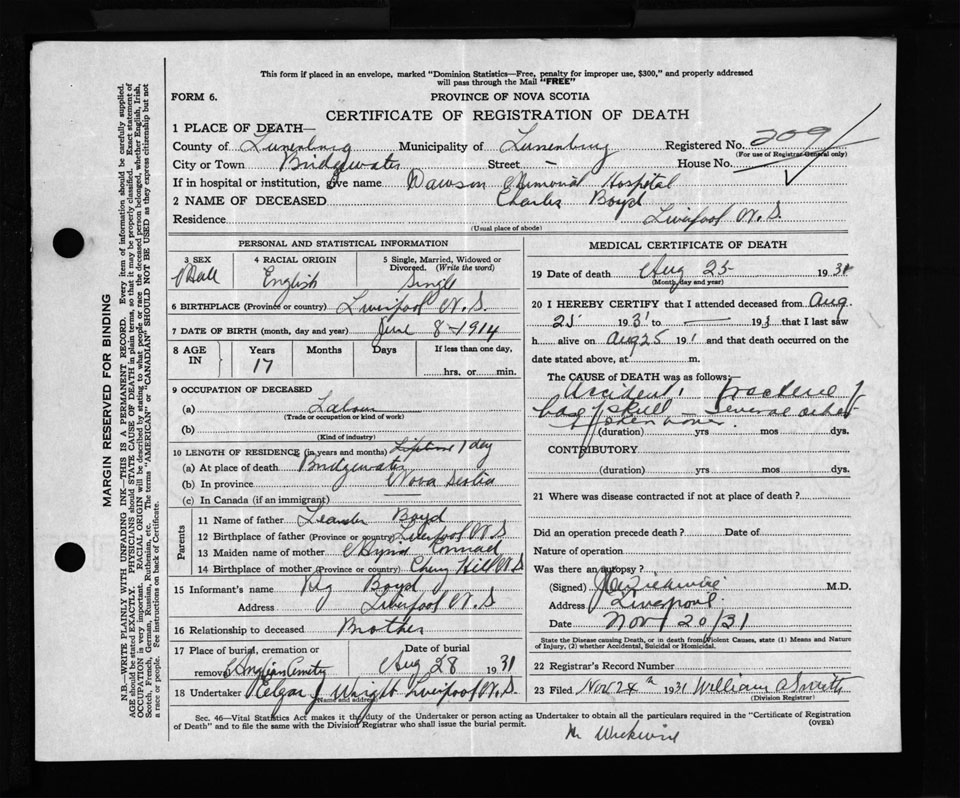 This form if placed in an envelope, marked "Dominion Statistics—Free, penalty for improper use, $300," and properly addressed
will pass through the Mail "FREE"
FORM 6.
PROVINCE OF NOVA SCOTIA
CERTIFICATE OF REGISTRATION OF DEATH
1 PLACE OF DEATH—
County of Lunenburg Municipality of Lunenburg Registered No. 209
(For use of Registrar-General only)
City or Town Bridgewater Street — House No.
If in hospital or institution, give name Dawson Memorial Hospital
2 NAME OF DECEASED Charles Boyd
Residence Liverpool N.S.
(Usual place of abode)
PERSONAL AND STATISTICAL INFORMATION
3 SEX 4 RACIAL ORIGIN 5 Single, Married, Widowed or
Divorced. (Write the word)
Male English Single
6 BIRTHPLACE (Province or country) Liverpool N.S.
7 DATE OF BIRTH (month, day and year) June 8-1914
8 AGE IN Years Months Days If less than one day,
17 hrs. or min.
9 OCCUPATION OF DECEASED
(a) Labour
(Trade or occupation or kind of work)
(b)
(Kind of industry)
10 LENGTH OF RESIDENCE (in years and months) 1 day
(a) At place of death Bridgewater
(b) In province Nova Scotia
(c) In Canada (if an immigrant)
Parents
11 Name of father Leander Boyd
12 Birthplace of father (Province or country) Liverpool N.S
13 Maiden name of mother Conrad
14 Birthplace of mother (Province or country) Cherry Hill N.S
15 Informant's name Reg Boyd
Address Liverpool N.S
16 Relationship to deceased Brother
17 Place of burial, cremation or
removal Anglican Cemetry
Date of burial
Aug 28 1931
18 Undertaker Edgar J Wright Liverpool N.S.
(Name and address)
MEDICAL CERTIFICATE OF DEATH
19 Date of death Aug 25 1931
(Month, day and year)
20 I HEREBY CERTIFY that I attended deceased from Aug.
25 1931 to — 193 that I last saw
h alive on Aug 25 191 and that death occurred on the
date stated above, at m.
The CAUSE of DEATH was as follows:
Accident, fracture of
base of skull — several other
broken bones.
(duration) yrs mos dys.
CONTRIBUTORY
(duration) yrs mos dys.
21 Where was disease contracted if not at place of death?
Did an operation precede death? Date of
Nature of operation
Was there an autopsy?
(Signed) Wickwire M.D.
Address Liverpool
Date Nov 20/31
State the Disease causing Death, or in death from Violent Causes, state (1) Means and Nature
of Injury, (2) whether Accidental, Suicidal or Homicidal.
22 Registrar's Record Number
23 Filed Nov 24th 1931 William A Smith
(Division Registrar)
Sec. 46—Vital Statistics Act makes it the duty of the Undertaker or person acting as Undertaker to obtain all the particulars required in the "Certificate of Registration
of Death" and to file the same with the Division Registrar who shall issue the burial permit.
(OVER)
Wickwire
MARGIN RESERVED FOR BINDING
N.B.—WRITE PLAINLY WITH UNFADING INK—THIS IS A PERMANENT RECORD. Every item of information should be carefully supplied.
AGE should be stated EXACTLY. PHYSICIANS should STATE CAUSE OF DEATH in plain terms, so that it may be properly classified. Exact statement of
OCCUPATION is very important. RACIAL ORIGIN will be described by stating to what people or race the deceased person belonged, whether English, Irish,
Scotch, French, German, Russian, Ruthenian, etc. The terms "AMERICAN" or "CANADIAN" SHOULD NOT BE USED as they express citizenship but not
a race or people. See instructions on back of Certificate.